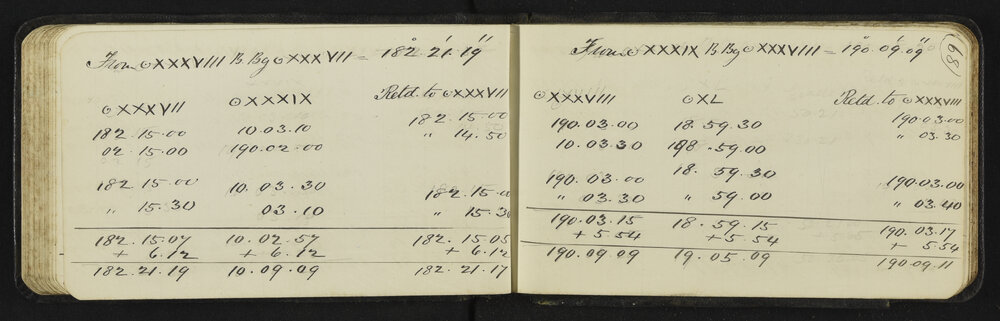 From ⊙XXXVIII B. Bg ⊙XXXVII = 182°. 21'. 19"
⊙XXXVII ⊙XXXIX Retd. to ⊙XXXVII
182. 15. 00 10. 03. 10 182. 15. 00
02. 15. 00 190. 02. 00 " 14. 50
182. 15. 00 10. 03. 30 182. 15. 00
" 15. 30 03. 10 " 15. 30
182. 15. 07 10. 02. 57 182. 15. 05
+ 6. 12 + 6. 12 + 6. 12
182. 21. 19 10. 09. 09 182. 21. 17
68
From ⊙XXXIX B Bg ⊙XXXVIII = 190°. 09'. 09"
⊙XXXVIII ⊙XL Retd. to ⊙XXXVIII
190. 03. 00 18. 59. 30 190. 03. 00
10. 03. 30 198. 59. 00 " 03. 30
190. 03. 00 18. 59. 30 190. 03. 00
" 03. 30 " 59. 00 " 03. 40
190. 03. 15 18. 59. 15 190. 03. 17
+ 5. 54 + 5. 54 + 5. 54
190. 09. 09 19. 05. 09 190. 09. 11